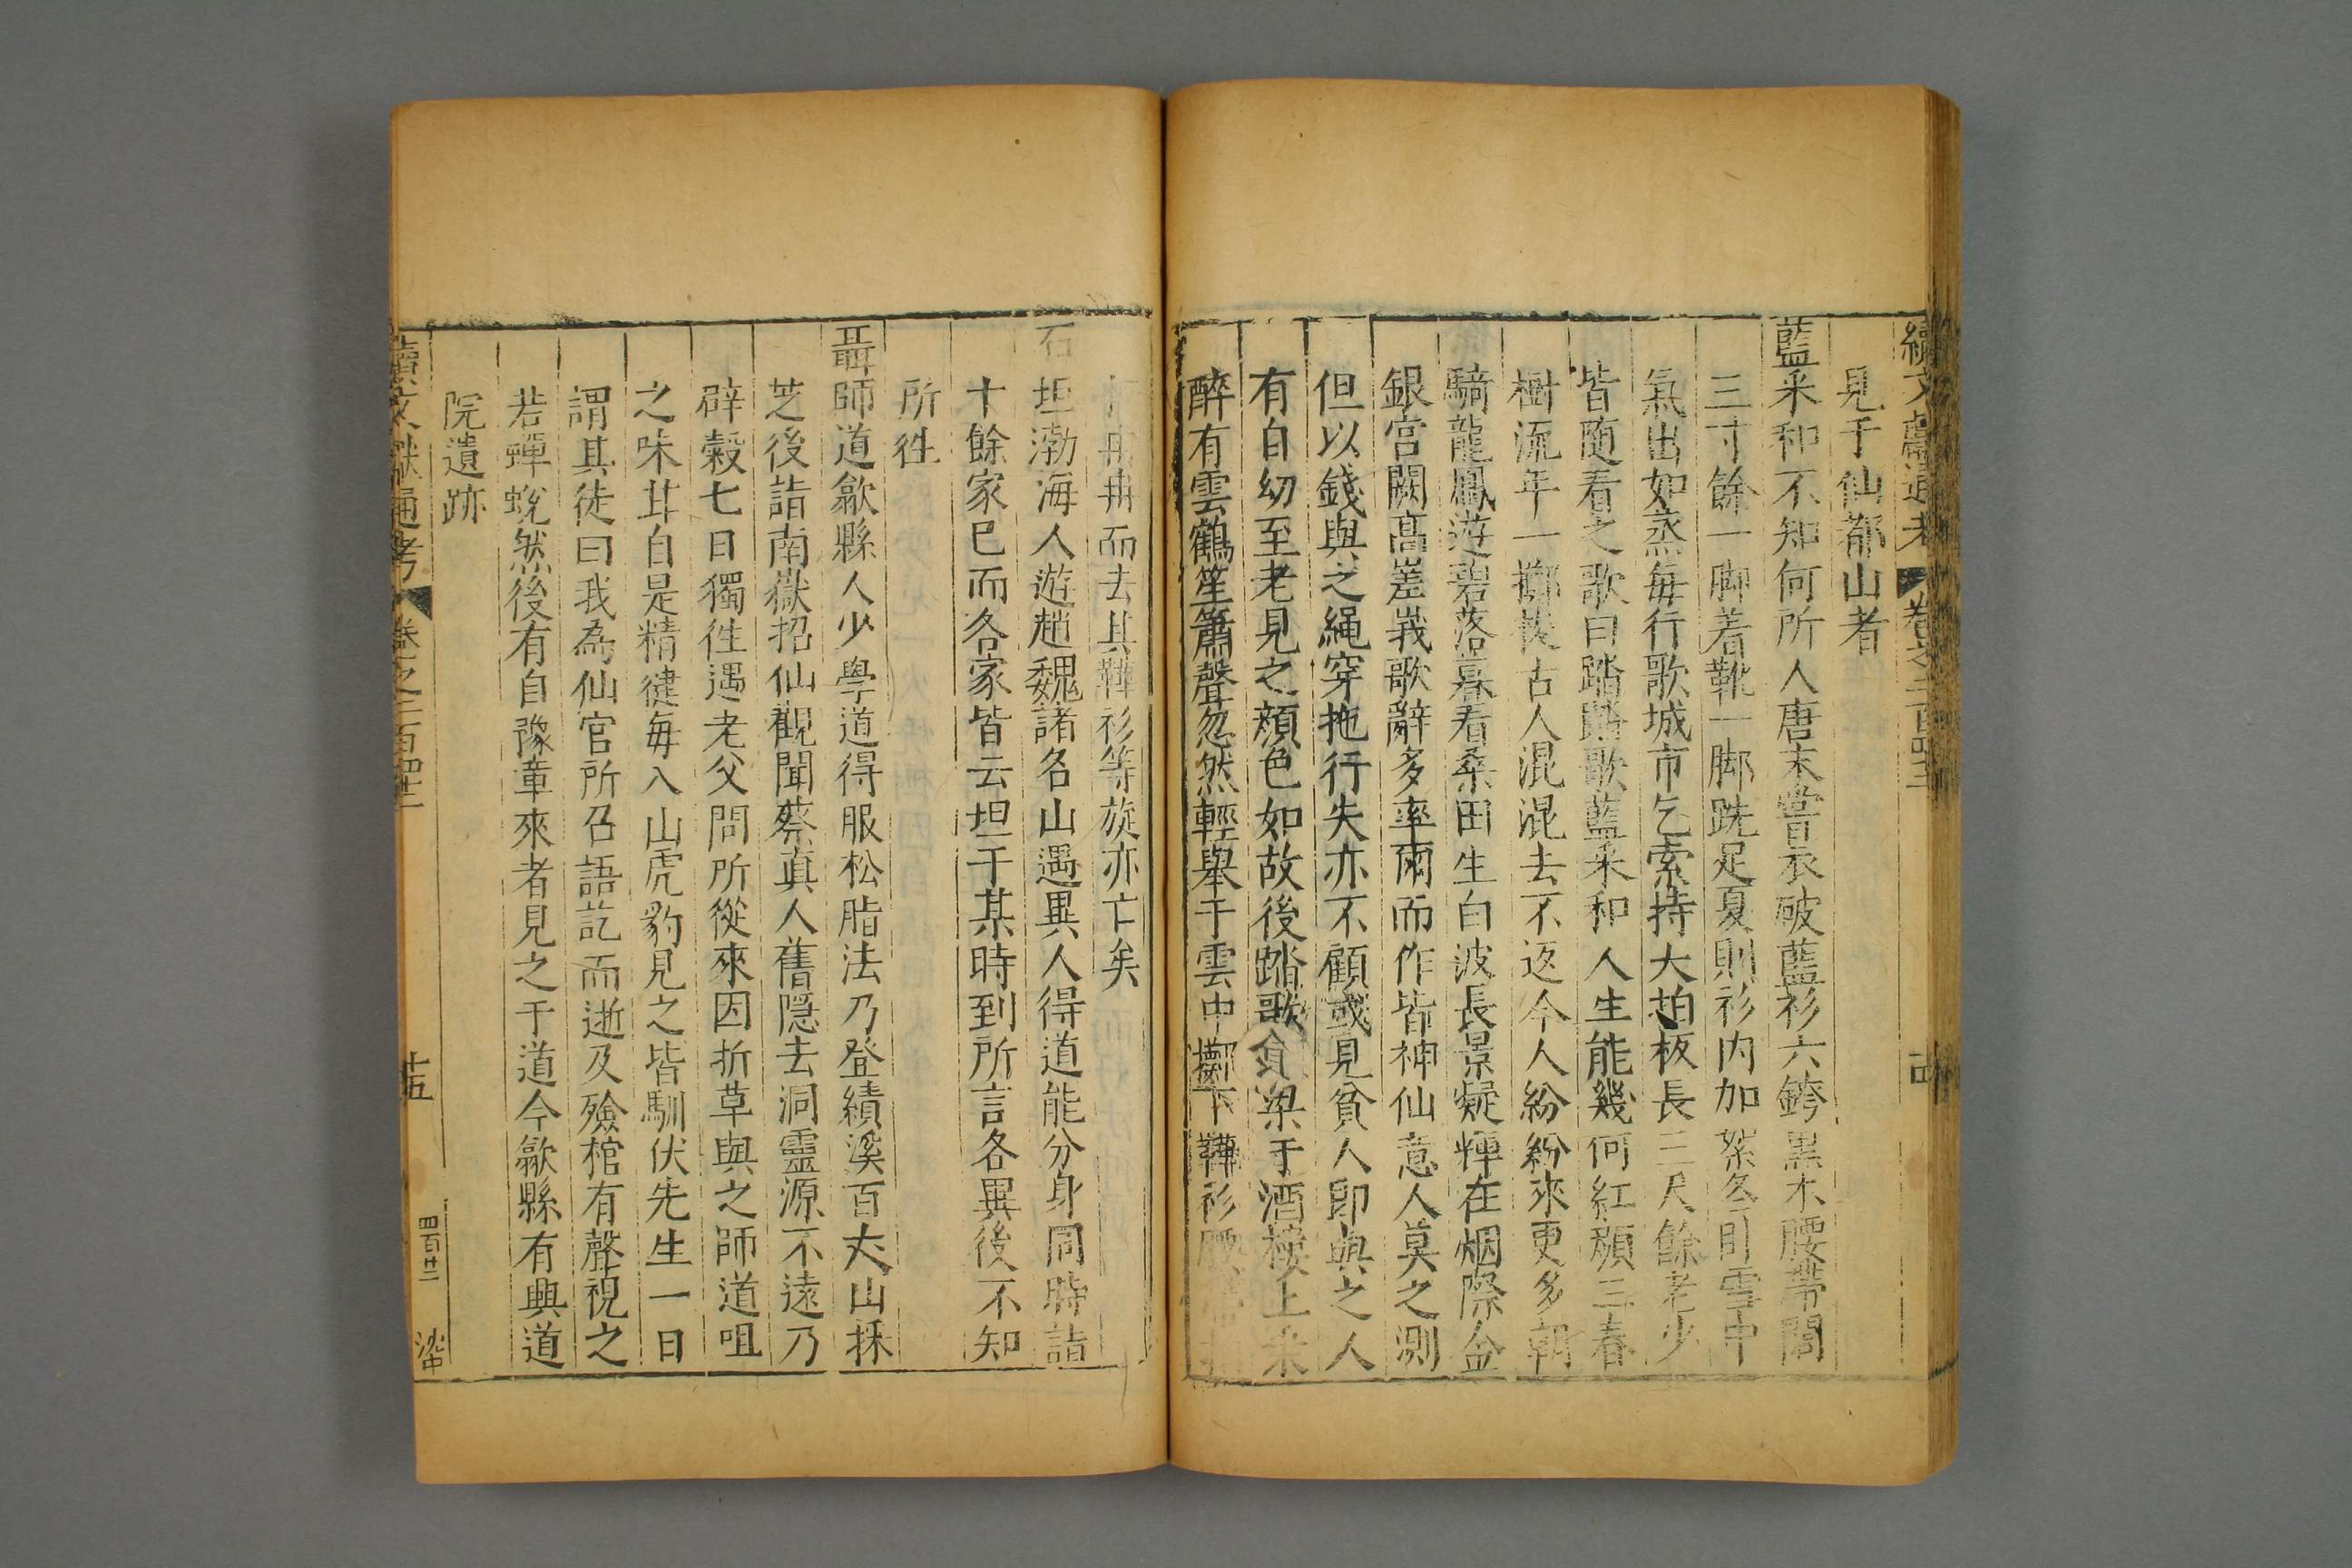 續文獻通考 卷之二百四十二 十四
見于仙都山者
藍采和不知何所人唐末嘗衣破藍衫六銙黑木腰帶闊
三寸餘一脚着靴一脚跣足夏則衫内加絮冬則卧雪中
氣出如蒸每行歌城市乞索持大拍板長三尺餘老少
皆隨看之歌曰踏踏歌藍采和人生能幾何紅顔三春
樹流年一擲梭古人混混去不返今人紛紛來更多朝
騎龍鳳遊碧落暮看桑田生白波長景凝輝在烟際金
銀宫闕高嵳峩歌辭多率爾而作皆神仙意人莫之測
但以錢與之繩穿拖行失亦不顧或見貧人即與之人
有自幼至老見之顔色如故後踏歌負梁于酒樓上來
醉有雲鶴笙簫聲忽然輕舉于雲中擲下鞾衫腰
冉冉而去其鞾衫等旋亦亡矣
石坦渤海人遊趙魏諸名山遇異人得道能分身同時詣
十餘家已而各家皆云坦于某時到所言各異後不知
所徃
聶師道歙縣人少學道得服松脂法乃登績溪百丈山採
芝後詣南嶽招仙觀聞蔡真人舊隱去洞靈源不遠乃
辟穀七日獨徃遇老父問所從來因折草與之師道咀
之味甘自是精徤每入山虎豹見之皆馴伏先生一日
謂其徒曰我爲仙官所召語訖而逝及殮棺有聲視之
若蟬蛻然後有自豫章來者見之于道今歙縣有興道
院遺跡
續文獻通考 卷之二百四十二 十五 四百廿二